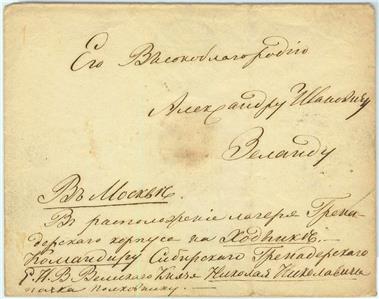 Его Высокоблагородію
Александру Ивановичу
Зеланду
Въ Москвѣ.
Въ расположеніе лагеря Грена-
дерскаго корпуса на Ходынкѣ.
Командиру Сибирскаго Гренадерскаго
Е. И. В. Великаго Князя Николая Николаевича
полка полковнику.